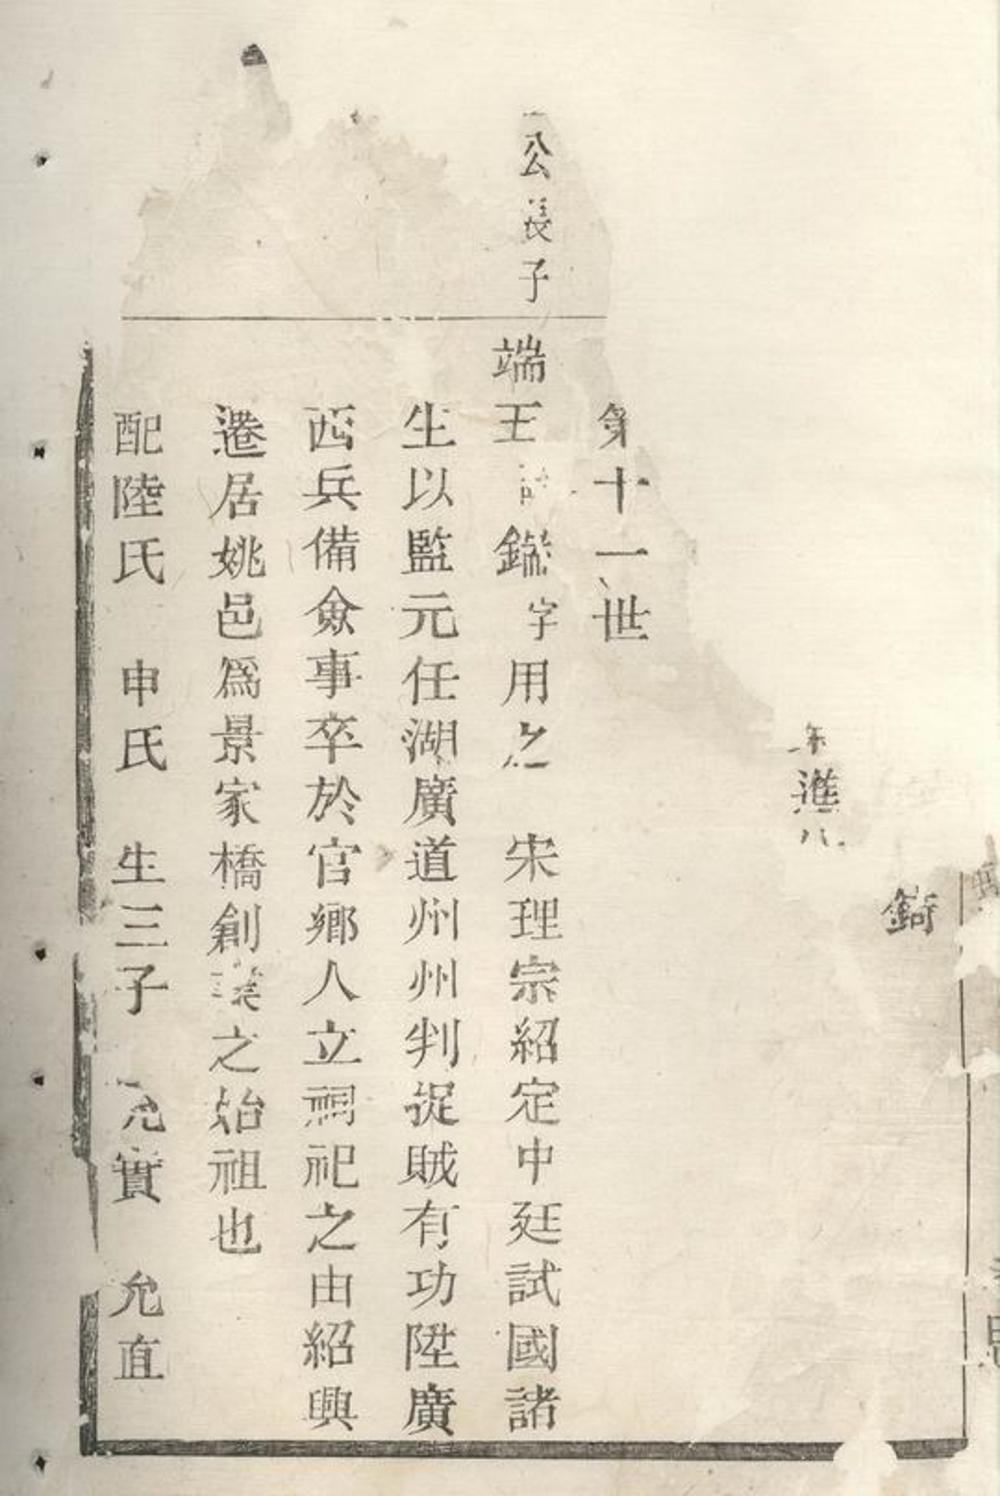 錡
進
第十一世
公長子
端王 鑑字用之 宋理宗紹定中廷試國諸
生以監元任湖廣道州州判捉賊有功陞廣
西兵備僉事卒於官鄉人立祠祀之由紹興
遷居姚邑爲景家橋創業之始祖也
配陸氏 申氏 生三子 允實 允直